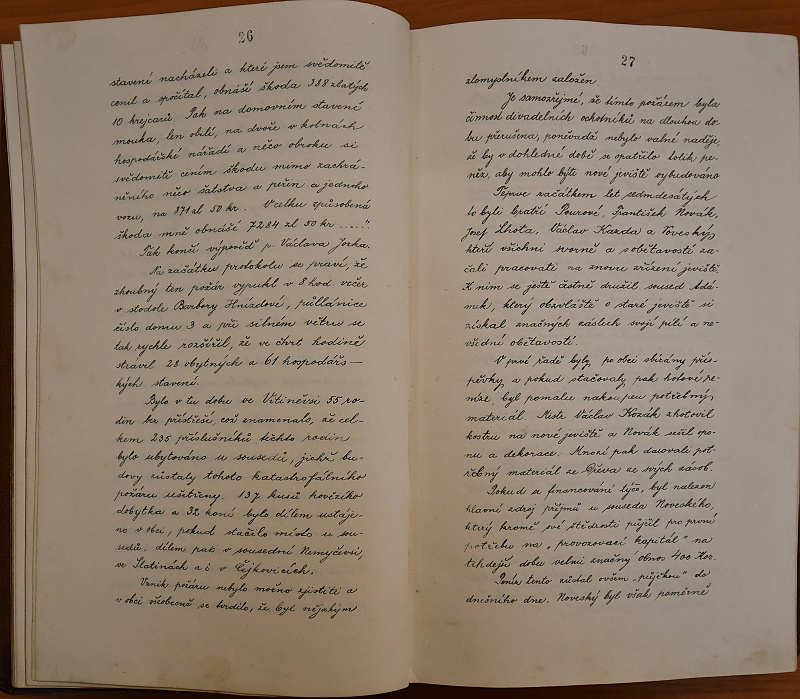 26
stavení nacházeli a které jsem svědomitě
cenil a spočítal, obnáší škoda 388 zlatých
10 krejcarů. Pak na domovním stavení
mouka, len obilí, na dvoře v kolnách
hospodářské nářadí a něco obroku si
svědomitě cením škodu mimo zachrá-
něního něco šatstva a peřin a jednoho
vozu, na 871 zl 50 kr. V celku způsobená
škoda mně obnáší 7284 zl 50 kr ......".
Tak končí výpověď p. Václava Jorka.
Na začátku protokolu se praví, že
zhoubný ten požár vypukl v 8 hod. večer
v stodole Barbory Hnízdové, půllánice
číslo domu 3 a při silném větru se
tak rychle rozšířil, že ve čtvrt hodině
strávil 28 obytných a 61 hospodářs-
kých stavení.
Bylo v tu dobu ve Vitiněvsi 55 ro-
din bez přístřeší, což znamenalo, že cel-
kem 235 příslušníků těchto rodin
bylo ubytováno u sousedů, jichž bu-
dovy zůstaly tohoto katastrofálního
požáru ušetřeny. 137 kusů hovězího
dobytka a 32 koní bylo dílem ustáje-
no v obci, pokud stačilo místo u sou-
sedů, dílem pak v sousední Nemyčevsi,
ve Slatinách a i v Čejkovicích.
Vznik požáru nebylo možno zjistiti a
v obci všeobecně se tvrdilo, že byl nějakým
27
zlomyslníkem založen.
Je samozřejmé, že tímto požárem byla
činnost divadelních ochotníků na dlouhou do-
bu přerušena, poněvadž nebylo valné naděje,
že by v dohledné době se opatřilo tolik pe-
něz, aby mohlo býti nové jeviště vybudováno
Teprve začátkem let sedmdesátých
to byli bratři Pourové, František Novák,
Josef Lhota, Václav Kazda a Noveský,
kteří všichni svorně a s obětavostí za-
čali pracovati na znovu zřízení jeviště.
K nim se ještě čestně družil soused Adá-
mek, který obzvláště o staré jeviště si
získal značných zásluh svojí pílí a ne-
všední obětavostí.
V prvé řadě byly po obci sbírány přís-
pěvky a pokud stačovaly pak hotové pe-
níze, byl pomalu nakoupen potřebný
materiál. Mistr Václav Kozák zhotovil
kostru na nové jeviště a Novák sešil opo-
nu a dekorace. Mnozí pak darovali pot-
řebný materiál ze dřeva ze svých zásob.
Pokud se financování týče, byl nalezen
hlavní zdroj příjmů u souseda Noveského,
který kromě své štědrosti půjčil pro první
potřebu na „provozovací kapitál" na
tehdejší dobu velmi značný obnos 400 Kor.
Peníz tento zůstal ovšem „půjčkou" do
dnešního dne. Noveský byl však poměrně